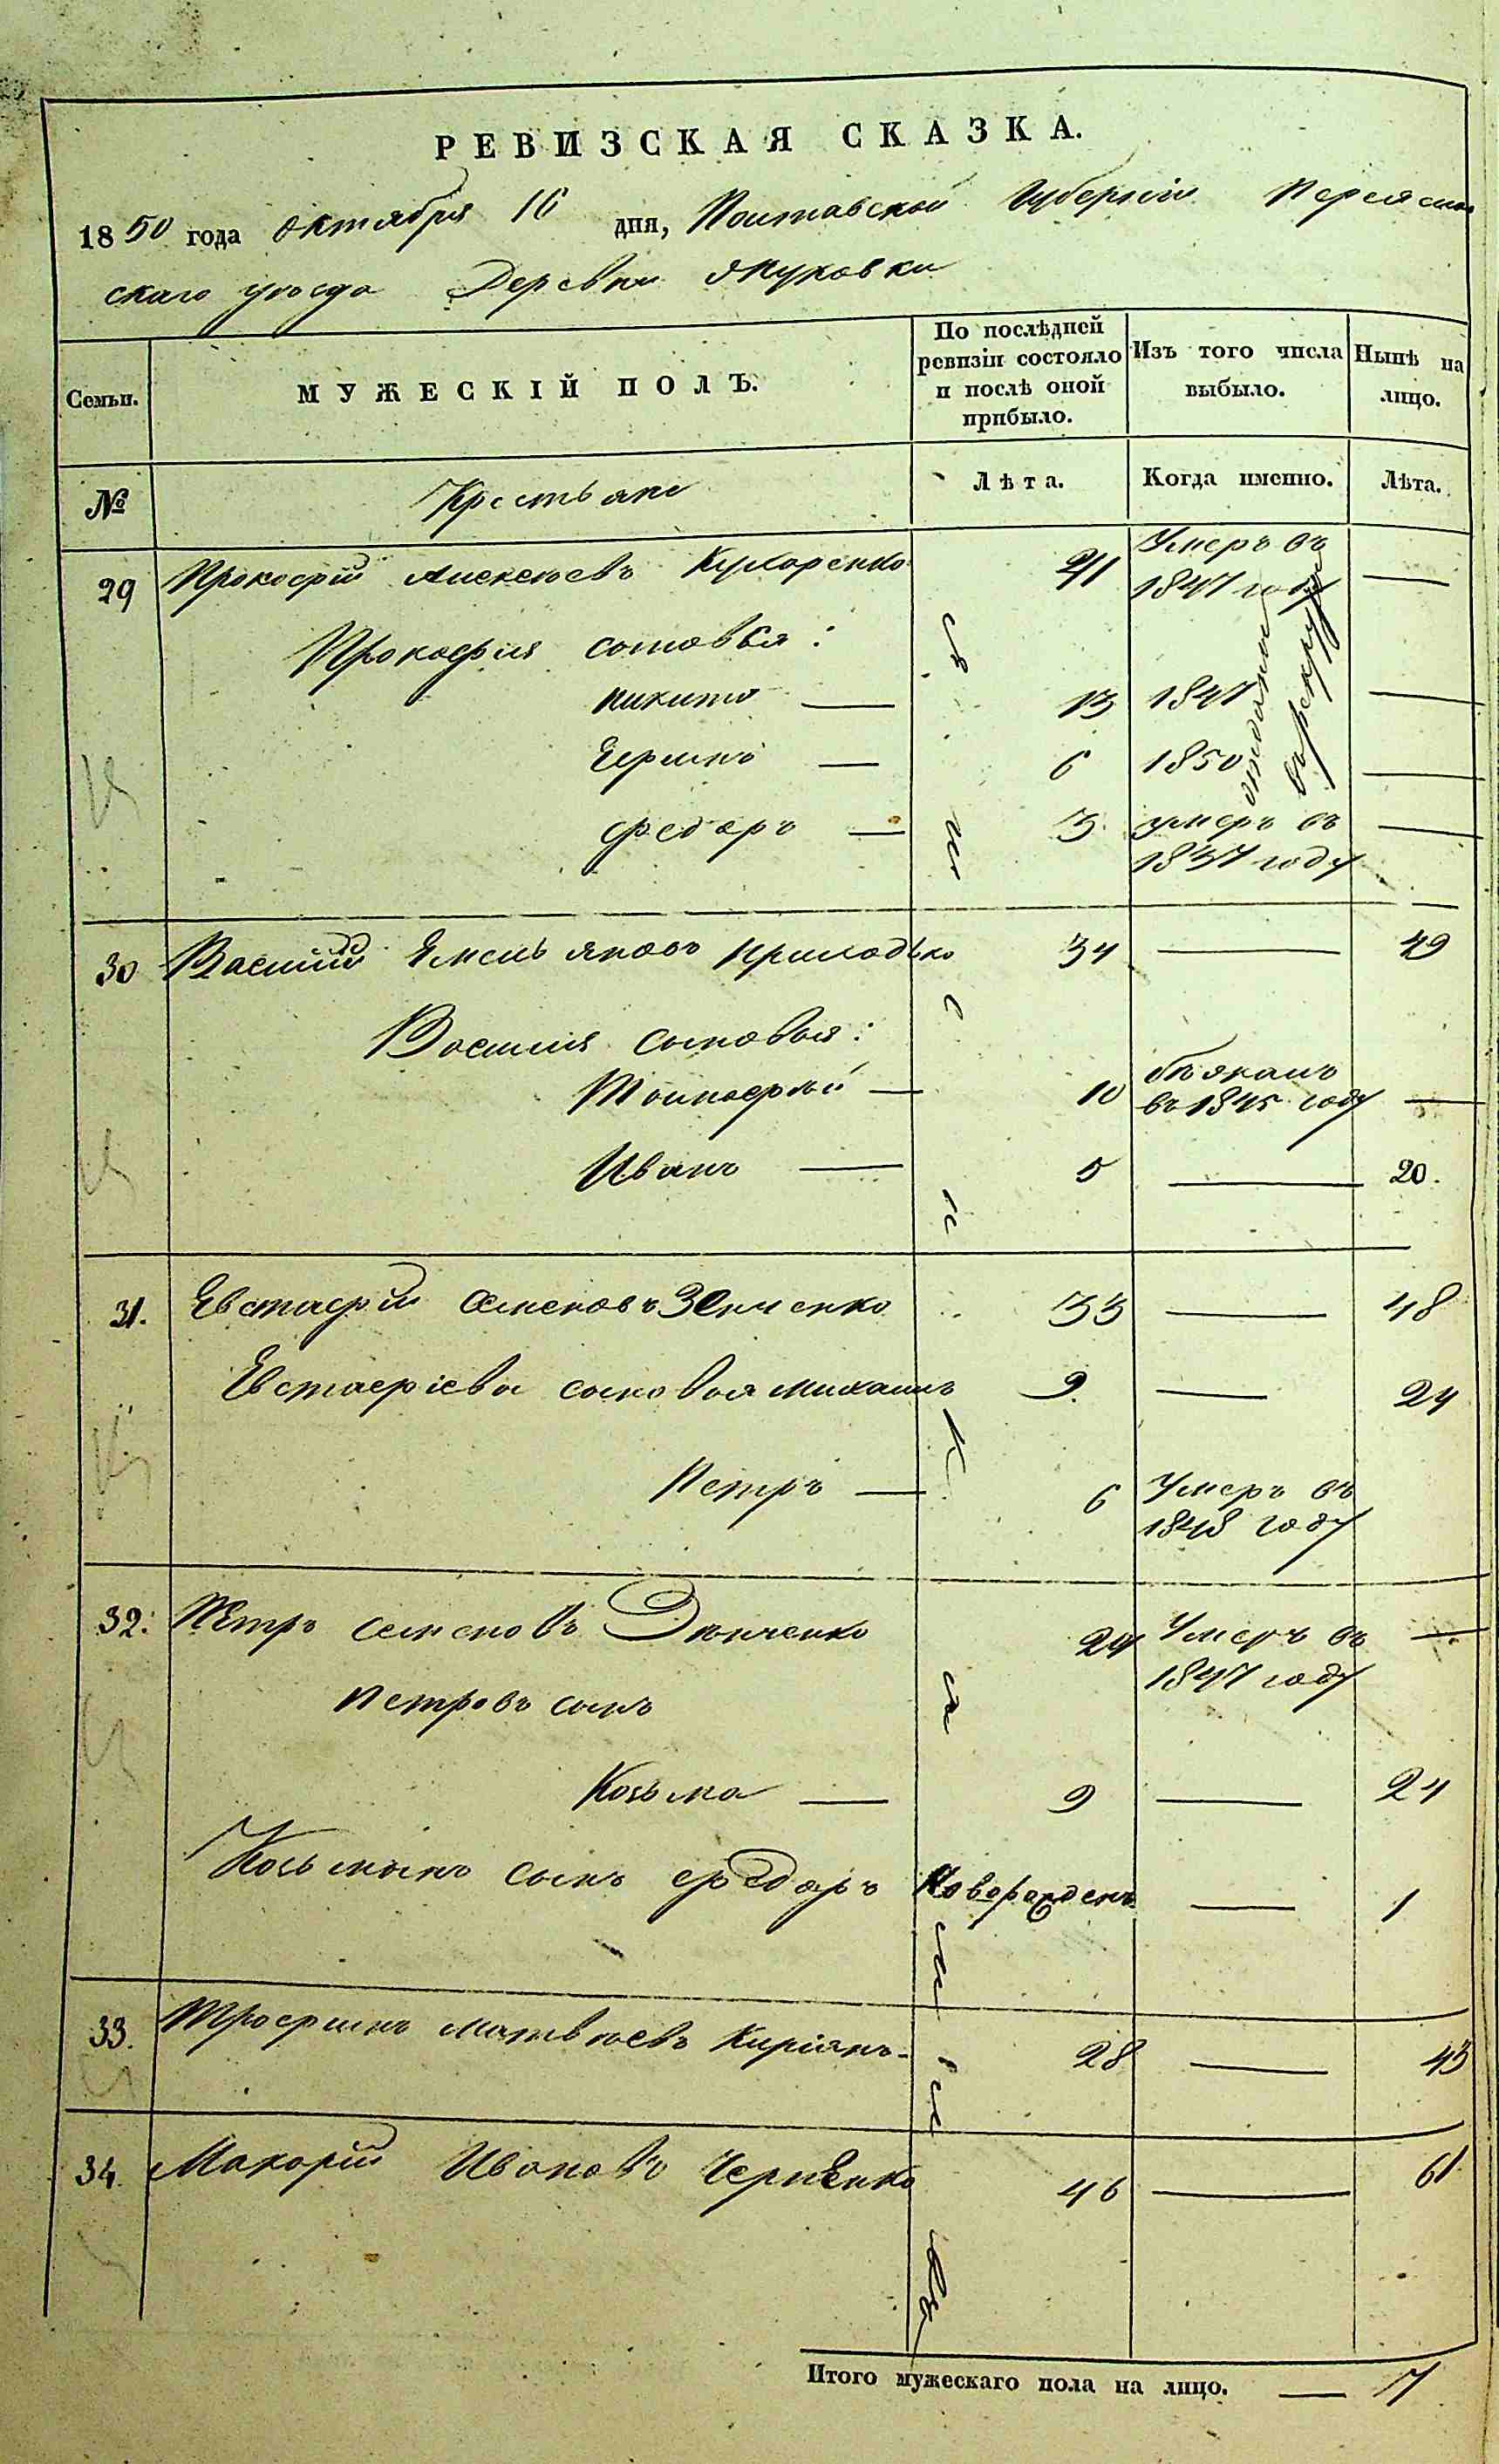 РЕВИЗСКАЯ СКАЗКА.
1850 года октября 16 дня, Полтавской Губерніи Переяслав
скаго уѣзда Деревни Якуковки
Семьи.
МУЖЕСКІЙ ПОЛЪ.
По послѣдней ревизіи состояло и послѣ оной прибыло.
Изъ того числа выбыло.
Нынѣ на лицо.
№
Крестьяне
Лѣта.
Когда именно.
Лѣта.
29 Прокофій Алексѣевъ Кухаренко 41 Умеръ въ 1847 году —
Прокофія сыновья:
Никита — 13 1847 —
Герминъ — 6 1850 —
отданы въ рекруты
Федоръ — 3 умеръ въ 1837 году —
30 Василій Емельяновъ Приходько 34 — 49
Василія сыновья:
Тимофей — 10 бѣжалъ въ 1845 году —
Иванъ — 5 — 20.
31. Евстафій Семеновъ Зенченко 33 — 48
Евстафіевы сыновья Михаилъ 9 — 24
Петръ — 6 Умеръ въ 1848 году
32. Петръ Семеновъ Зѣнченко 24 Умеръ въ 1847 году —
Петровъ сынъ
Козьма — 9 — 24
Козьминъ сынъ Федоръ Новорожденъ — 1
33. Трофимъ Матвѣевъ Киріянъ. 28 — 43
34. Макарій Ивановъ Черненко 46 — 61
Итого мужескаго пола на лицо. — 7